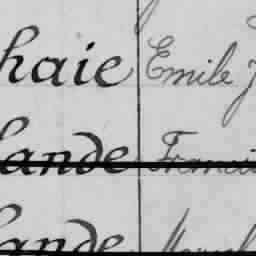 haie Emile J
lande Franci
lande